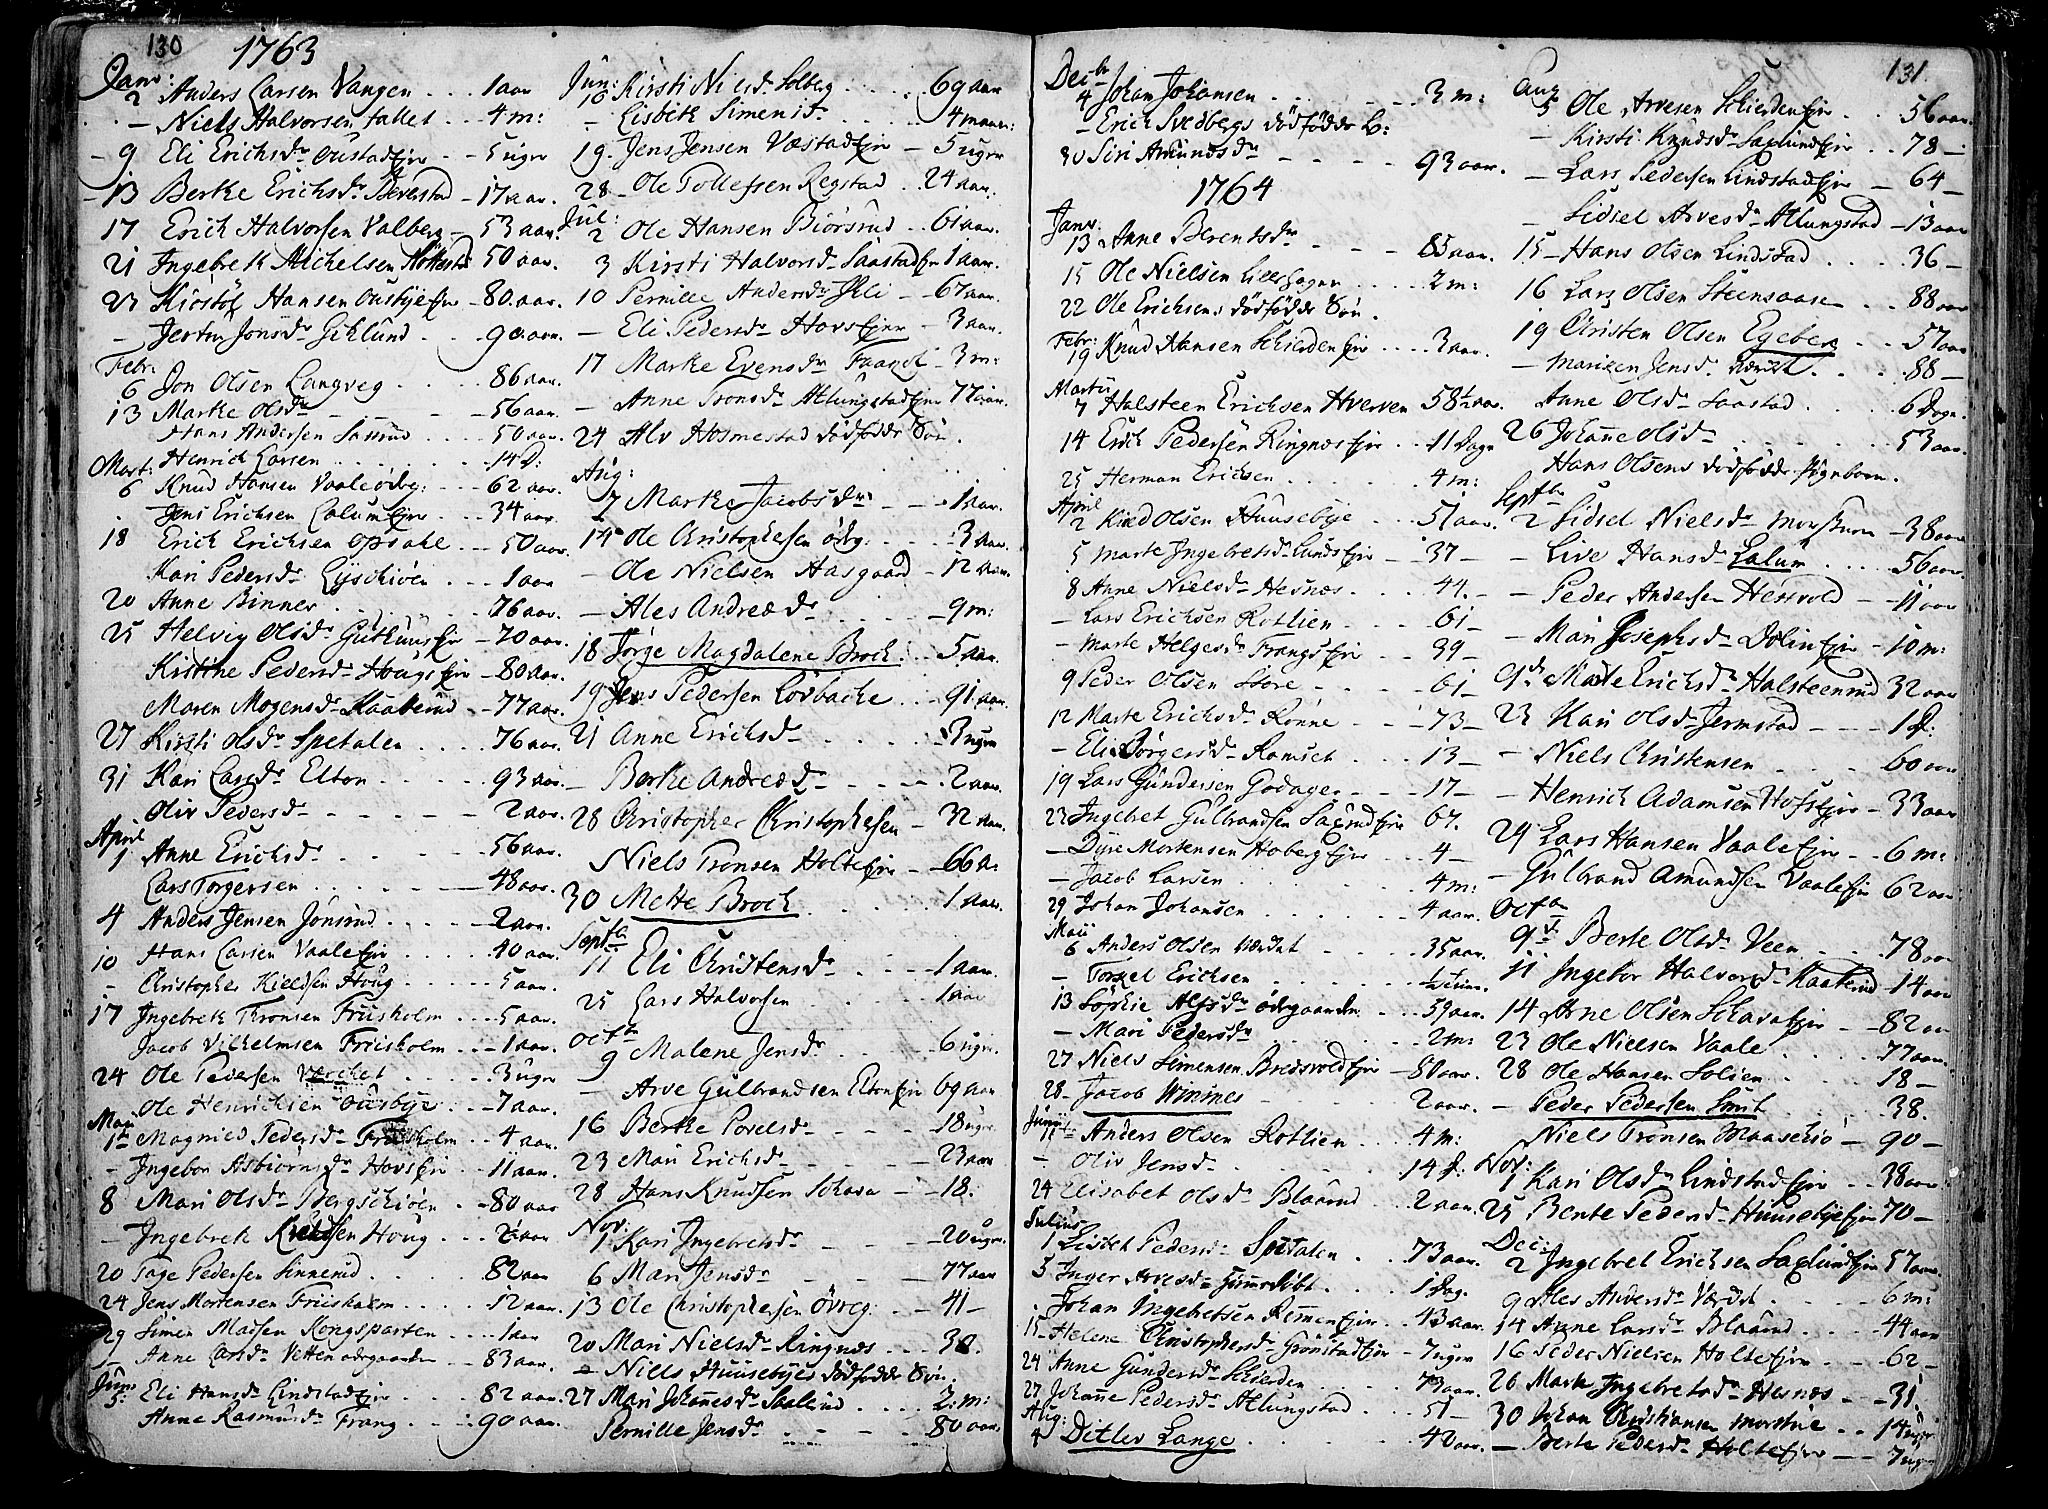 130 1763
Janv:
2 Anders Larsen Vangen . . . 1 aar
– Niels Halvorsen . . . 4 m:
– 9 Eli Erichsd. – – 5 uger
– 13 Berthe Erichsd. – 17 aar.
17 Erich Halvorsen Valberg – 53 aar.
21 Ingebreth Michelsen 50 aar.
23 Hansen – 80 aar.
– Jonsd. . . 90 aar.
Febr:
6 Jon Olsen Langveg . . . . 86 aar.
13 Marthe Olsd. – – – – 56 aar.
Hans Andersen . . . . 50 aar.
Mart: Henrich Larsen . . . 14 D:
6 Knud Hansen – – 62 aar.
– Jens Erichsen Lalum Ejer . . – 34 aar.
18 Erich Erichsen Opsahl – – 50 aar.
Kari Pedersd. . . . 1 aar
20 Anne Binner . . . . 76 aar.
25 Helvig Olsd. – 70 aar.
Kirstine Pedersd. – 80 aar.
Maren Mogensd. – 77 aar.
27 Kirsti Olsd. Spetalen . . . . 76 aar.
31 Kari Larsd. Elton . . . . 93 aar.
Oliv Pedersd. – – – – – 2 aar.
April
1 Anne Erichsd. – – – – 56 aar.
Lars Torgersen . . . . – 48 aar.
4 Anders Jensen Jønsrud . . . . – 2 aar.
10 Hans Larsen Vaale Ejer . . . . 40 aar.
– Christopher Houg . . . . . 5 aar.
17 Ingebreth Thronsen Friisholm . . . 5 aar.
Jacob Vilhelmsen Friisholm . . – 1 aar.
24 Ole Pedersen . . . . 3 uger
Ole Henrichsen . . – 7 aar.
Maji
1 Magnild Pedersd. Friisholm . . 4 aar.
– Ingebor Asbiørnsd. Hovs Ejer . . 11 aar.
8 Mari Olsd. . – 80 aar
– Ingebreth Houg . . . aar
20 Tage Pedersen Sinnerud . . . . 82 aar
24 Jens Mortensen Friisholm . . . 12 aar.
29 Simen Madsen Kongsparten . . . . 1 aar
– Anne Larsd. – – 83 aar.
Jun:
5 Eli Hansd. Lindstad Ejer . . . 82 aar.
Anne Rasmusd. Frang . . . . 90 aar.
Jun:
10 Kirsti Nielsd. Solberg . . . . 69 aar
– Lisbeth Simensd. . . . . 4 maan:
19. Jens Jensen Ejer – 5 uger
28 – Ole Tollefsen Regstad . . 24 aar.
Jul:
2 Ole Hansen Biørsrud . . 61 aar.
3 Kirsti Halvorsd. 1 aar.
10 Pernille Andersd. – 67 aar.
– Eli Pedersd. Hovs Ejer – 3 aar.
17 Marthe Evensd. – 3 m:
– Anne Tronsd. Atlungstad Ejer 77 aar.
24 Alv Hosmestad dødfødde Søn.
Aug:
7 Marthe Jacobsd. . . – 1 aar.
14 Ole Christophersen . . . . 3 aar.
– Ole Nielsen Aasgaard – 12 aar.
– Ales Andread. . . . . – 9 m:
18 Jørge Magdalene Broch . . 5 aar.
19 Jens Pedersen Lovbache . . – 91 aar.
21 Anne Erichsd. . . . . – 3 uger
– Berthe Andread. – – – – 2 aar.
28 Christopher Christophersen – 32 aar.
Niels Tronsen Holte Ejer – – 66 a:
30 Mette Broch . . . . . 1 aar.
Septb
11 Eli Christensd. . . . – 1 aar.
25 Lars Halvorsen . . . . 1 aar
Octb
9 Malene Jensd. . . . . – 6 uger.
– Arve Gulbrandsen Elton Ejer 69 aar
16 Berthe Povelsd. – – – – 18 uger.
23 Mari Erichsd. – – – – – 23 aar
28 Hans Knudsen – – 18.
Nov:
1 Kari Ingebretsd. – – – 20 uger.
6 Mari Jensd. – – – – 77 aar
13 Ole Christophersen . – 41 –
20 Mari Nielsd. Ringnæs . . . 38.
– Niels Huusebyes dødfødde Søn.
27 Mari Johanesd. . . . . 2. m:
Pernille Jensd. – – – – 80 aar.
131.
Decbr
4 Johan Johansen . . . . . . . 3 m:
– Erich Svedbergs dødfødde b:
30 Siri Amundsd. – – – – – 93 aar.
1764
Janv.
13 Anne Berendsd. – – – – 85 aar.
15 Ole Nielsen . . . . 2 m:
22 Ole Erichsens dødfødde Søn.
Febr:
19 Knud Hansen Schierden Ejer . . . . 3 aar.
Martii
7 Halsteen Erichsen Hverven 58½ aar.
14 Erich Pedersen Ringnæs Ejer . . 11 Dage
25 Herman Erichsen . . . . . . 4 m:
April
2 Olsen Huusebye . . . 51 aar.
5 Marte Ingebretsd. Lunds Ejer – – 37 –
8 Anne Nielsd. Hesnæs . . . . 44. –
– Lars Erichsen Rotlien . . . . 61 –
– Marte Helgesd. Frangs Ejer . . 39 –
9 Peder Olsen Store – – – – 61 –
12 Marte Erichsd. Rønne – – – 73 –
– Eli . . . 13 –
19 Lars Gundersen Godager – – – 17 –
23 Ingebret Gulbrandsen Ejer 67.
– Dyre Mortensen Hoberg Ejer . . 4 –
– Jacob Larsen . . . . . 4 m:
29 Johan Johansen . . . . . 4 aar.
Maii
6 Anders Olsen . . . . 35 aar.
– Erichsen . . . . . .
13 Sophie . . . 39 aar.
– Mari Pedersd. . . . . . . 2 m:
27 Niels Simensen – 80 aar.
28 – Jacob Wimmes – – – – 2 aar.
Junij
11 Anders Olsen Rotlien . . . . 4 m:
– Oliv Jensd. . . . . . . 14 d.
24 Elisabet Olsd. Blaarud . . . 2 aar.
Julius
1 Lisbet Pedersd. Spetalen . . 73 aar.
3 Inger Arvesd. . . . . 1 Dag.
– Johan Ingebretsen Ejer . . . 43 aar.
15 – Helene Christophersd. Grønstad Ejer – 7 uger
24 Anne Gundersd. Schierden . . . . 73 aar.
27 Johane Pedersd. Atlungstad . . . 51 –
Aug:
4 Ditlev Lange . . . . . . . 40 aar.
Aug
5 Ole Arvesen Schierden Ejer . . 56 aar.
– Kirsti Knudsd. Saxlund Ejer . . 78 –
– Lars Pedersen Lindstad Ejer – 64 –
– Sidsel Arvesd. Atlungstad – 13 aar
15 – Hans Olsen Lindstad . . . . 36 –
16 Lars Olsen Steensaasen . . . 88 aar
19 Christen Olsen Egeberg . . . 57 aar
– Marizen Jensd. . . . . 88 –
Anne Olsd. Saastad . . . . 6 Dage.
26 Johane Olsd. . . . . . . 53 aar.
Hans Olsens dødfødde Pigebarn.
Septbr
2 Sidsel Nielsd. – 38 aar
– Live Hansd. Lalum . . . . 56 aar.
– Peder Andersen – – 11 aar
– Mari Josephsd. Dølin Ejer – 10 m:
9 Marte Erichsd. Halsteensrud 32 aar
23 Kari Olsd. Jermstad – – – 1 d.
– Niels Christensen . . . . 60 aar
– Henrich Adamsen Hofs Ejer – 33 aar
29 Lars Hansen Vaale Ejer – – 6 m:
– Gulbrand Amundsen Vaale Ejer 62 aar
Octbr
9 Berte Olsd. Veen – . . 78 aar
11 Ingebor Halvorsd. 14 aar
14 Arne Olsen Ejer – – 82 aar
23 Ole Nielsen Vaale . . . . 77 aar.
28 Ole Hansen Solien . . . . 18 –
– Peder Pedersen Smit . . . 38.
Niels Tronsen – 90 –
Nov:
1 Kari Olsd. Lindstad Ejer . . 38 aar.
25 Bente Pedersd. Huusebye Ejer 70 –
Dec:
2 Ingebret Erichsen Saxlund Ejer 57 aar.
9 Ales Andersd. . . . . 6 m:
14 Anne Larsd. Blaarud . . . . 44 aar
16 Peder Nielsen Holte Ejer . . – 62 –
26 Marte Ingebretsd. Hesnæs . . – 31.
30 Johan Christiansen . . 14 uger
– Berte Pedersd. Holte Ejer – – 7 uger